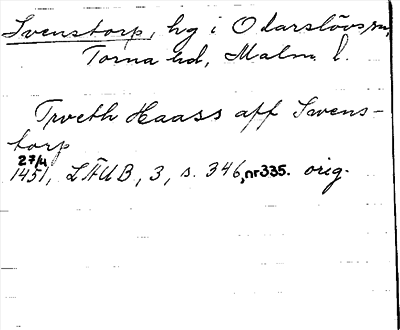 Svenstorp, hg i Odarslövs sn,
Torna hd, Malm. l.
Trveth Haass aff Svens-
torp
27/4
1451, LÄUB, 3, s. 346, nr335. orig.